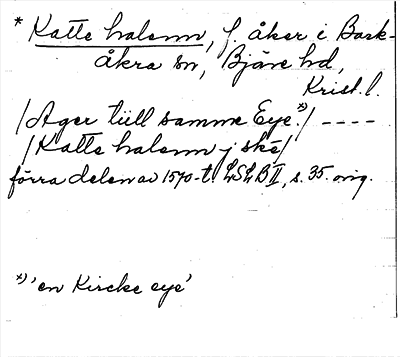 * Katte halsenn, f. åker i Bark-
åkra sn, Bjäre hd,
Krist. l.
/Ager tiill samme Eye *)/ ----
/Katte halsenn j skè/
förra delen av 1570-t. LSLB II, s. 35. orig.
*) 'en Kircke eye'